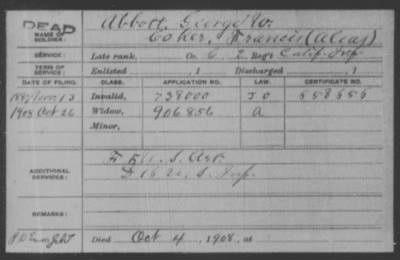 DEAD
NAME OF SOLDIER: Abbott, George W.
Coher, Francis (Alias)
SERVICE: Late rank, Co. C, 2 Reg't Calif. Inf.
TERM OF SERVICE: Enlisted , 1 Discharged , 1
DATE OF FILING. CLASS. APPLICATION NO. CERTIFICATE NO.
Invalid, 738000 558556
1908 Oct 26 Widow, 906856 A
Minor,
ADDITIONAL SERVICES: F U. S. Art
D 16 U. S. Inf.
REMARKS:
Died Oct 4, 1908, at